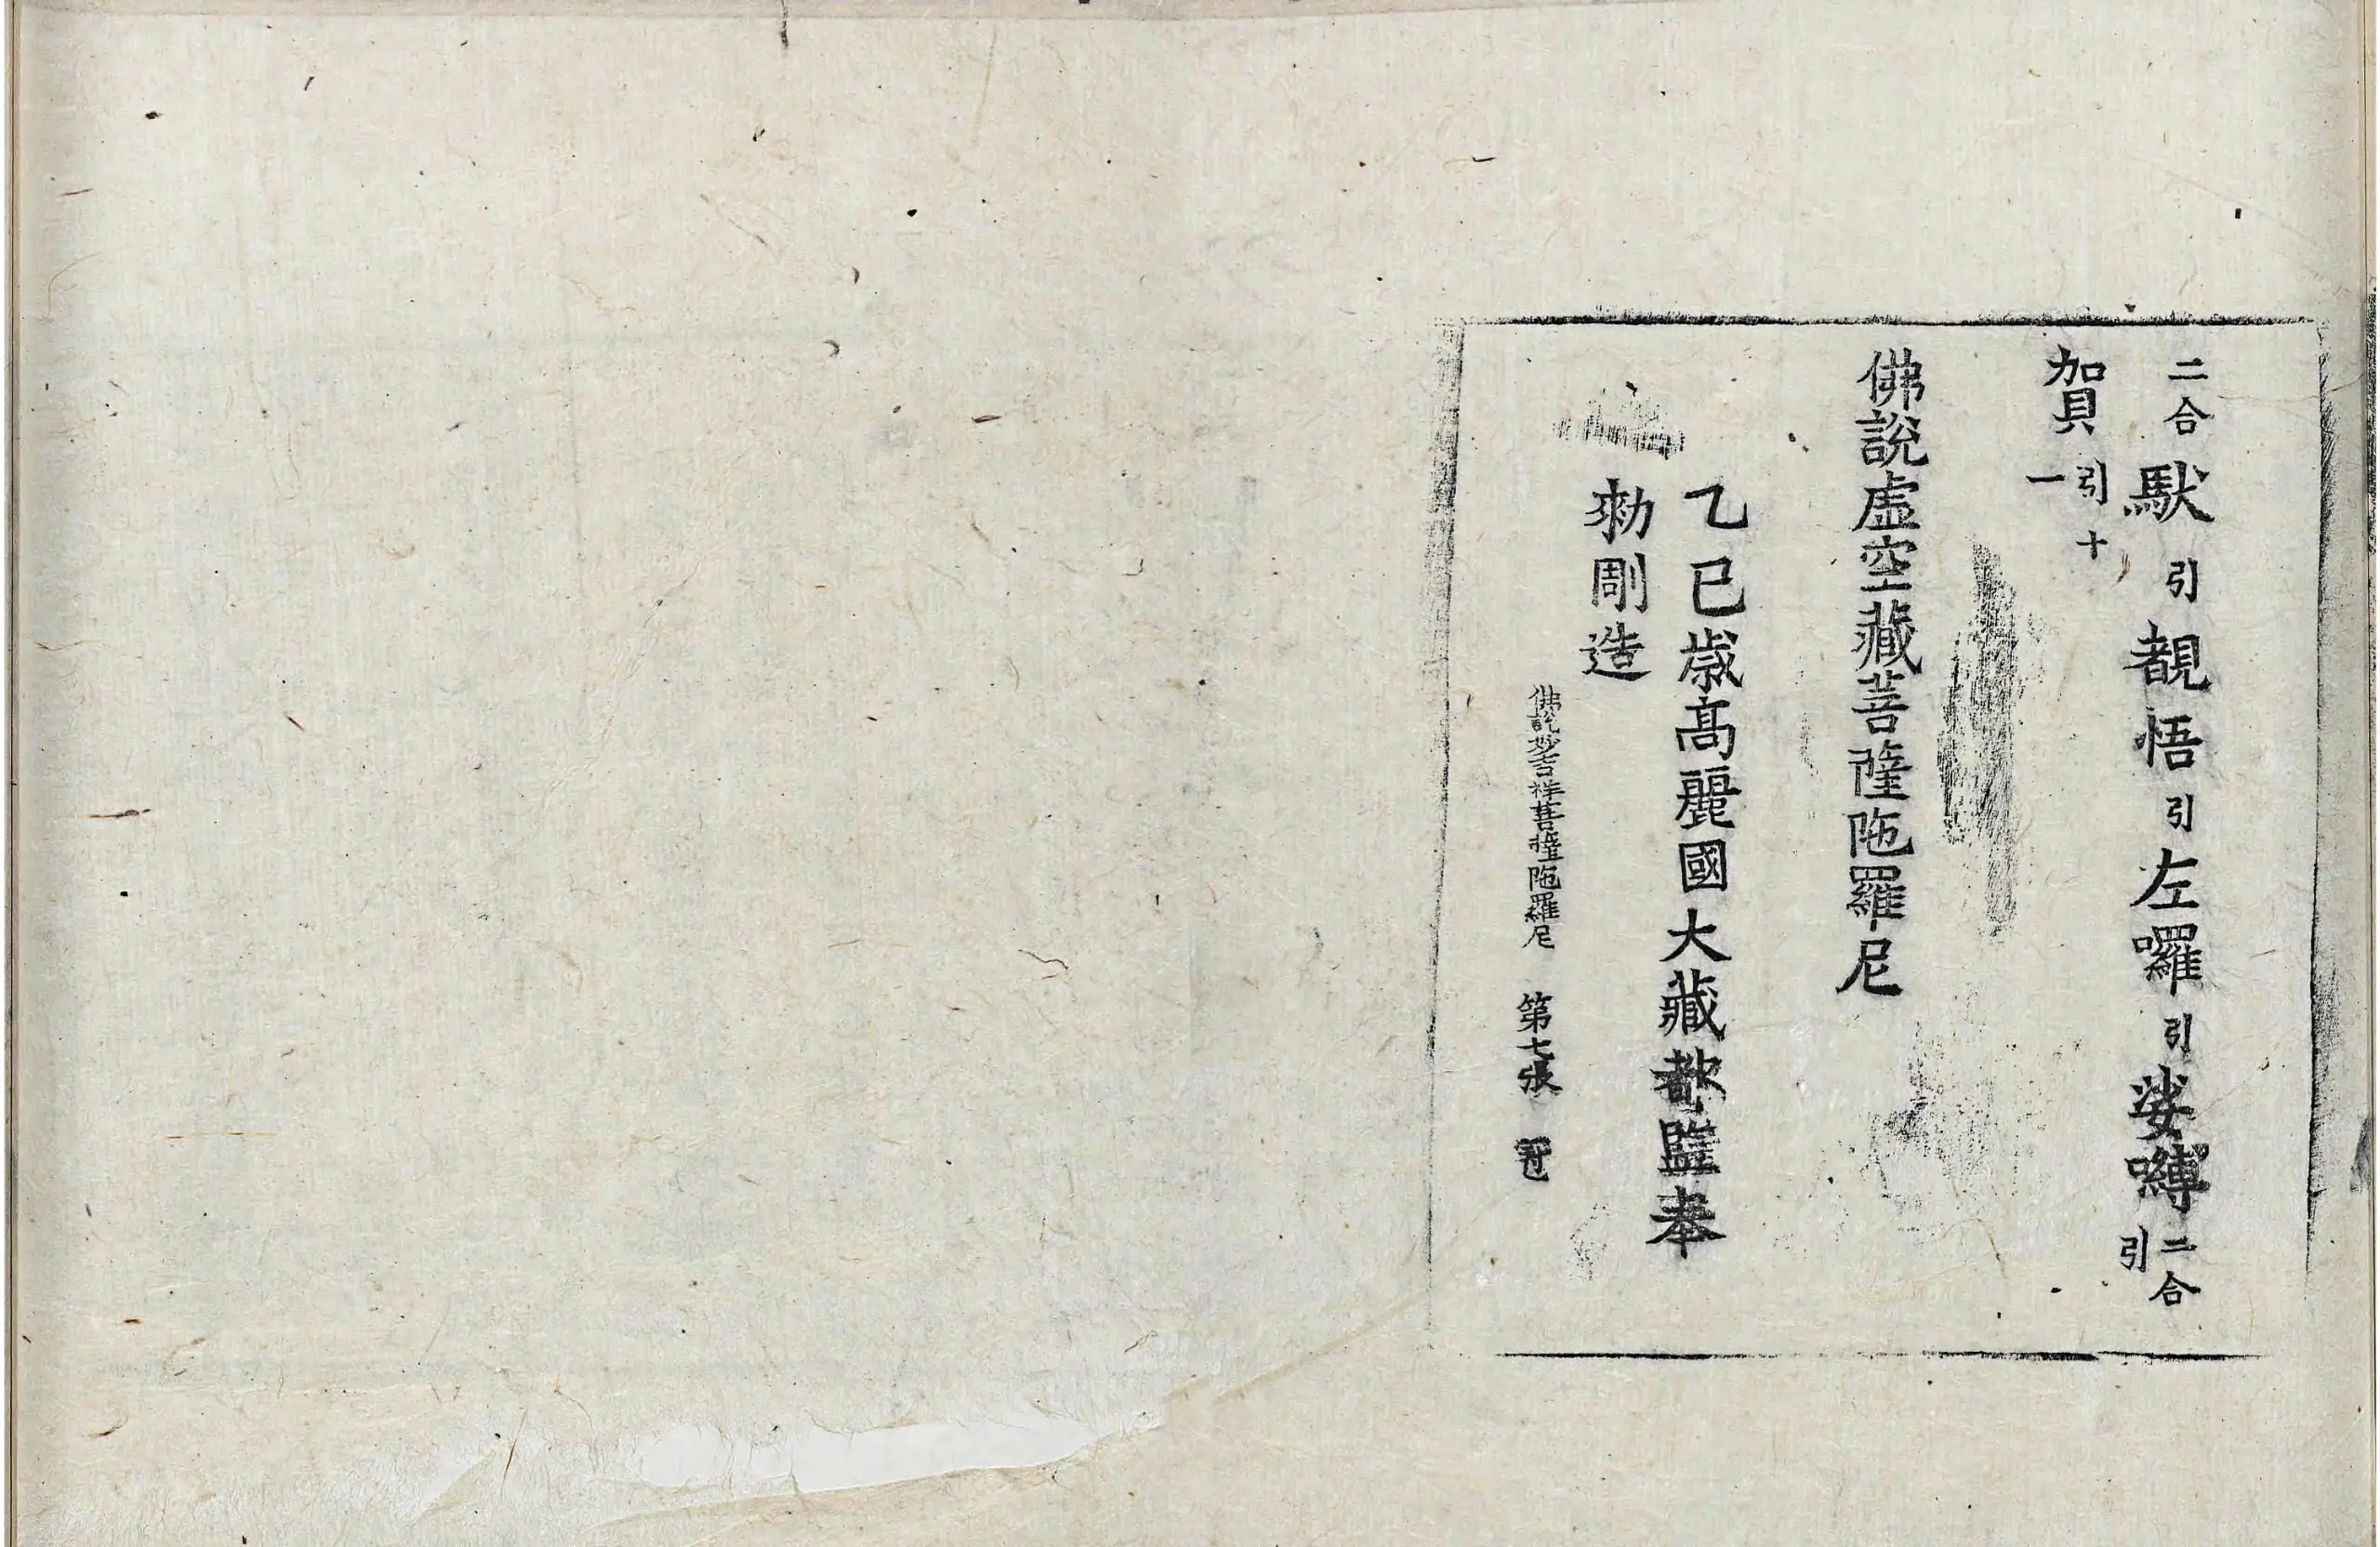 二合馱引覩悟引左囉引娑嚩二合引
賀引十一
佛說虛空藏菩薩陁羅尼
乙巳歲高麗國大藏都監奉
勑剛造
佛說妙吉祥菩薩陁羅尼 第七張 冠